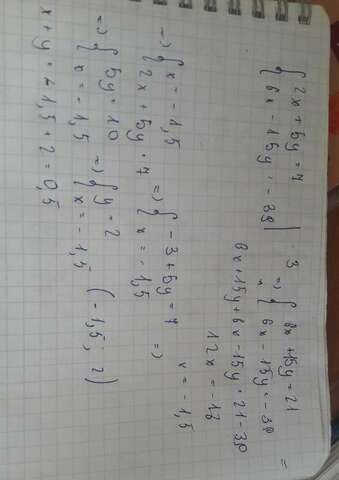 { 2x + 5y = 7 | · 3 => { 6x + 15y = 21 =
{ 6x - 15y = -39 { 6x - 15y = -39
6x + 15y + 6x - 15y = 21 - 39
12x = -18
x = -1,5
=> { x = -1,5 => { x = -1,5 =>
{ 2x + 5y = 7 { -3 + 5y = 7
=> { 5y = 10 => { y = 2 (-1,5; 2)
{ x = -1,5 { x = -1,5
x + y = -1,5 + 2 = 0,5